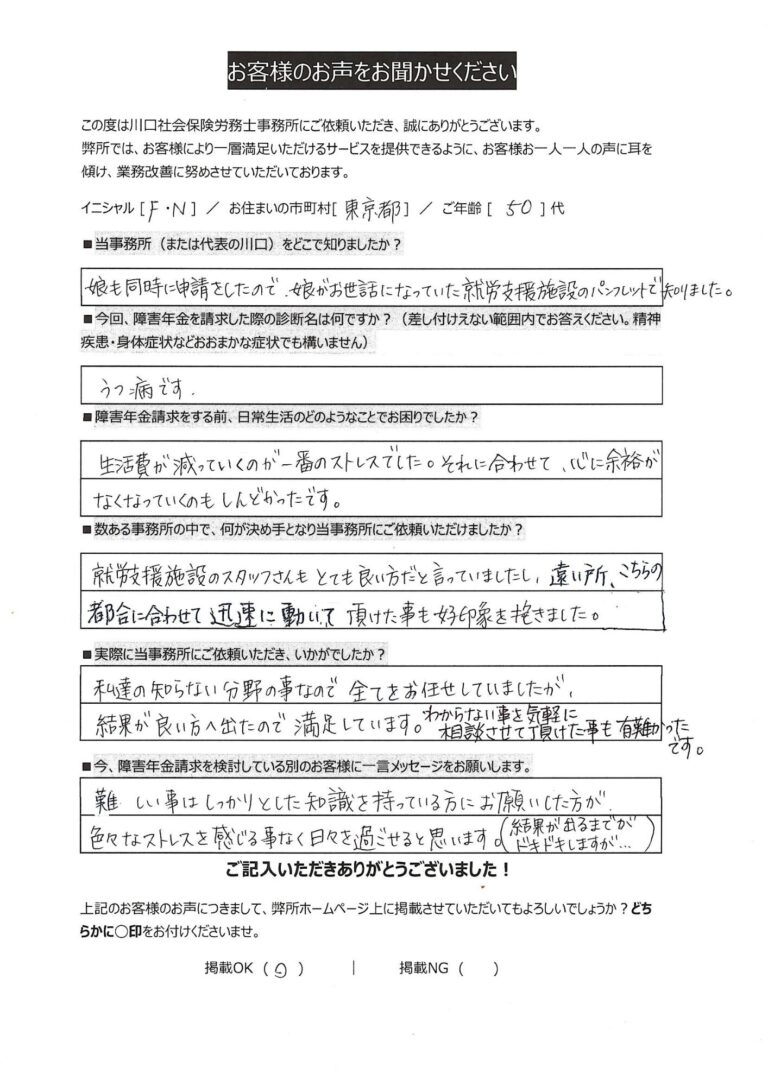 お客様のお声をお聞かせください
この度は川口社会保険労務士事務所にご依頼いただき、誠にありがとうございます。
弊所では、お客様により一層満足いただけるサービスを提供できるように、お客様お一人一人の声に耳を
傾け、業務改善に努めさせていただいております。
イニシャル [ F・N ] / お住まいの市町村[ 東京都 ] / ご年齢 [ 50 ] 代
■当事務所（または代表の川口）をどこで知りましたか？
娘も同時に申請をしたので、娘がお世話になっていた就労支援施設のパンフレットで知りました。
■今回、障害年金を請求した際の診断名は何ですか？（差し付けえない範囲内でお答えください。精神
疾患・身体症状などおおまかな症状でも構いません）
うつ病です.
■障害年金請求をする前、日常生活のどのようなことでお困りでしたか？
生活費が減っていくのが一番のストレスでした。それに合わせて、心に余裕が
なくなっていくのもしんどかったです。
■数ある事務所の中で、何が決め手となり当事務所にご依頼いただけましたか？
就労支援施設のスタッフさんもとても良い方だと言っていましたし、遠い所、こちらの
都合に合わせて迅速に動いて頂けた事も好印象を抱きました。
■実際に当事務所にご依頼いただき、いかがでしたか？
私達の知らない分野の事なので全てをお任せしていましたが、
結果が良い方へ出たので満足しています。わからない事を気軽に
相談させて頂けた事も有難かった
です。
■今、障害年金請求を検討している別のお客様に一言メッセージをお願いします。
難しい事はしっかりとした知識を持っている方にお願いした方が
色々なストレスを感じる事なく日々を過ごせると思います。(結果が出るまでが
ドキドキしますが…)
ご記入いただきありがとうございました！
上記のお客様のお声につきまして、弊所ホームページ上に掲載させていただいてもよろしいでしょうか？どち
らかに〇印をお付けくださいませ。
掲載OK ( ○ ) | 掲載NG ( )